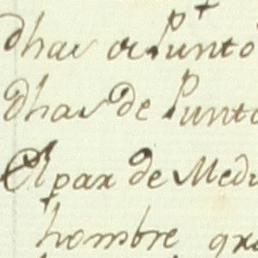 dhas de Punto
dhas de Punto
El par de Med
hombre gr